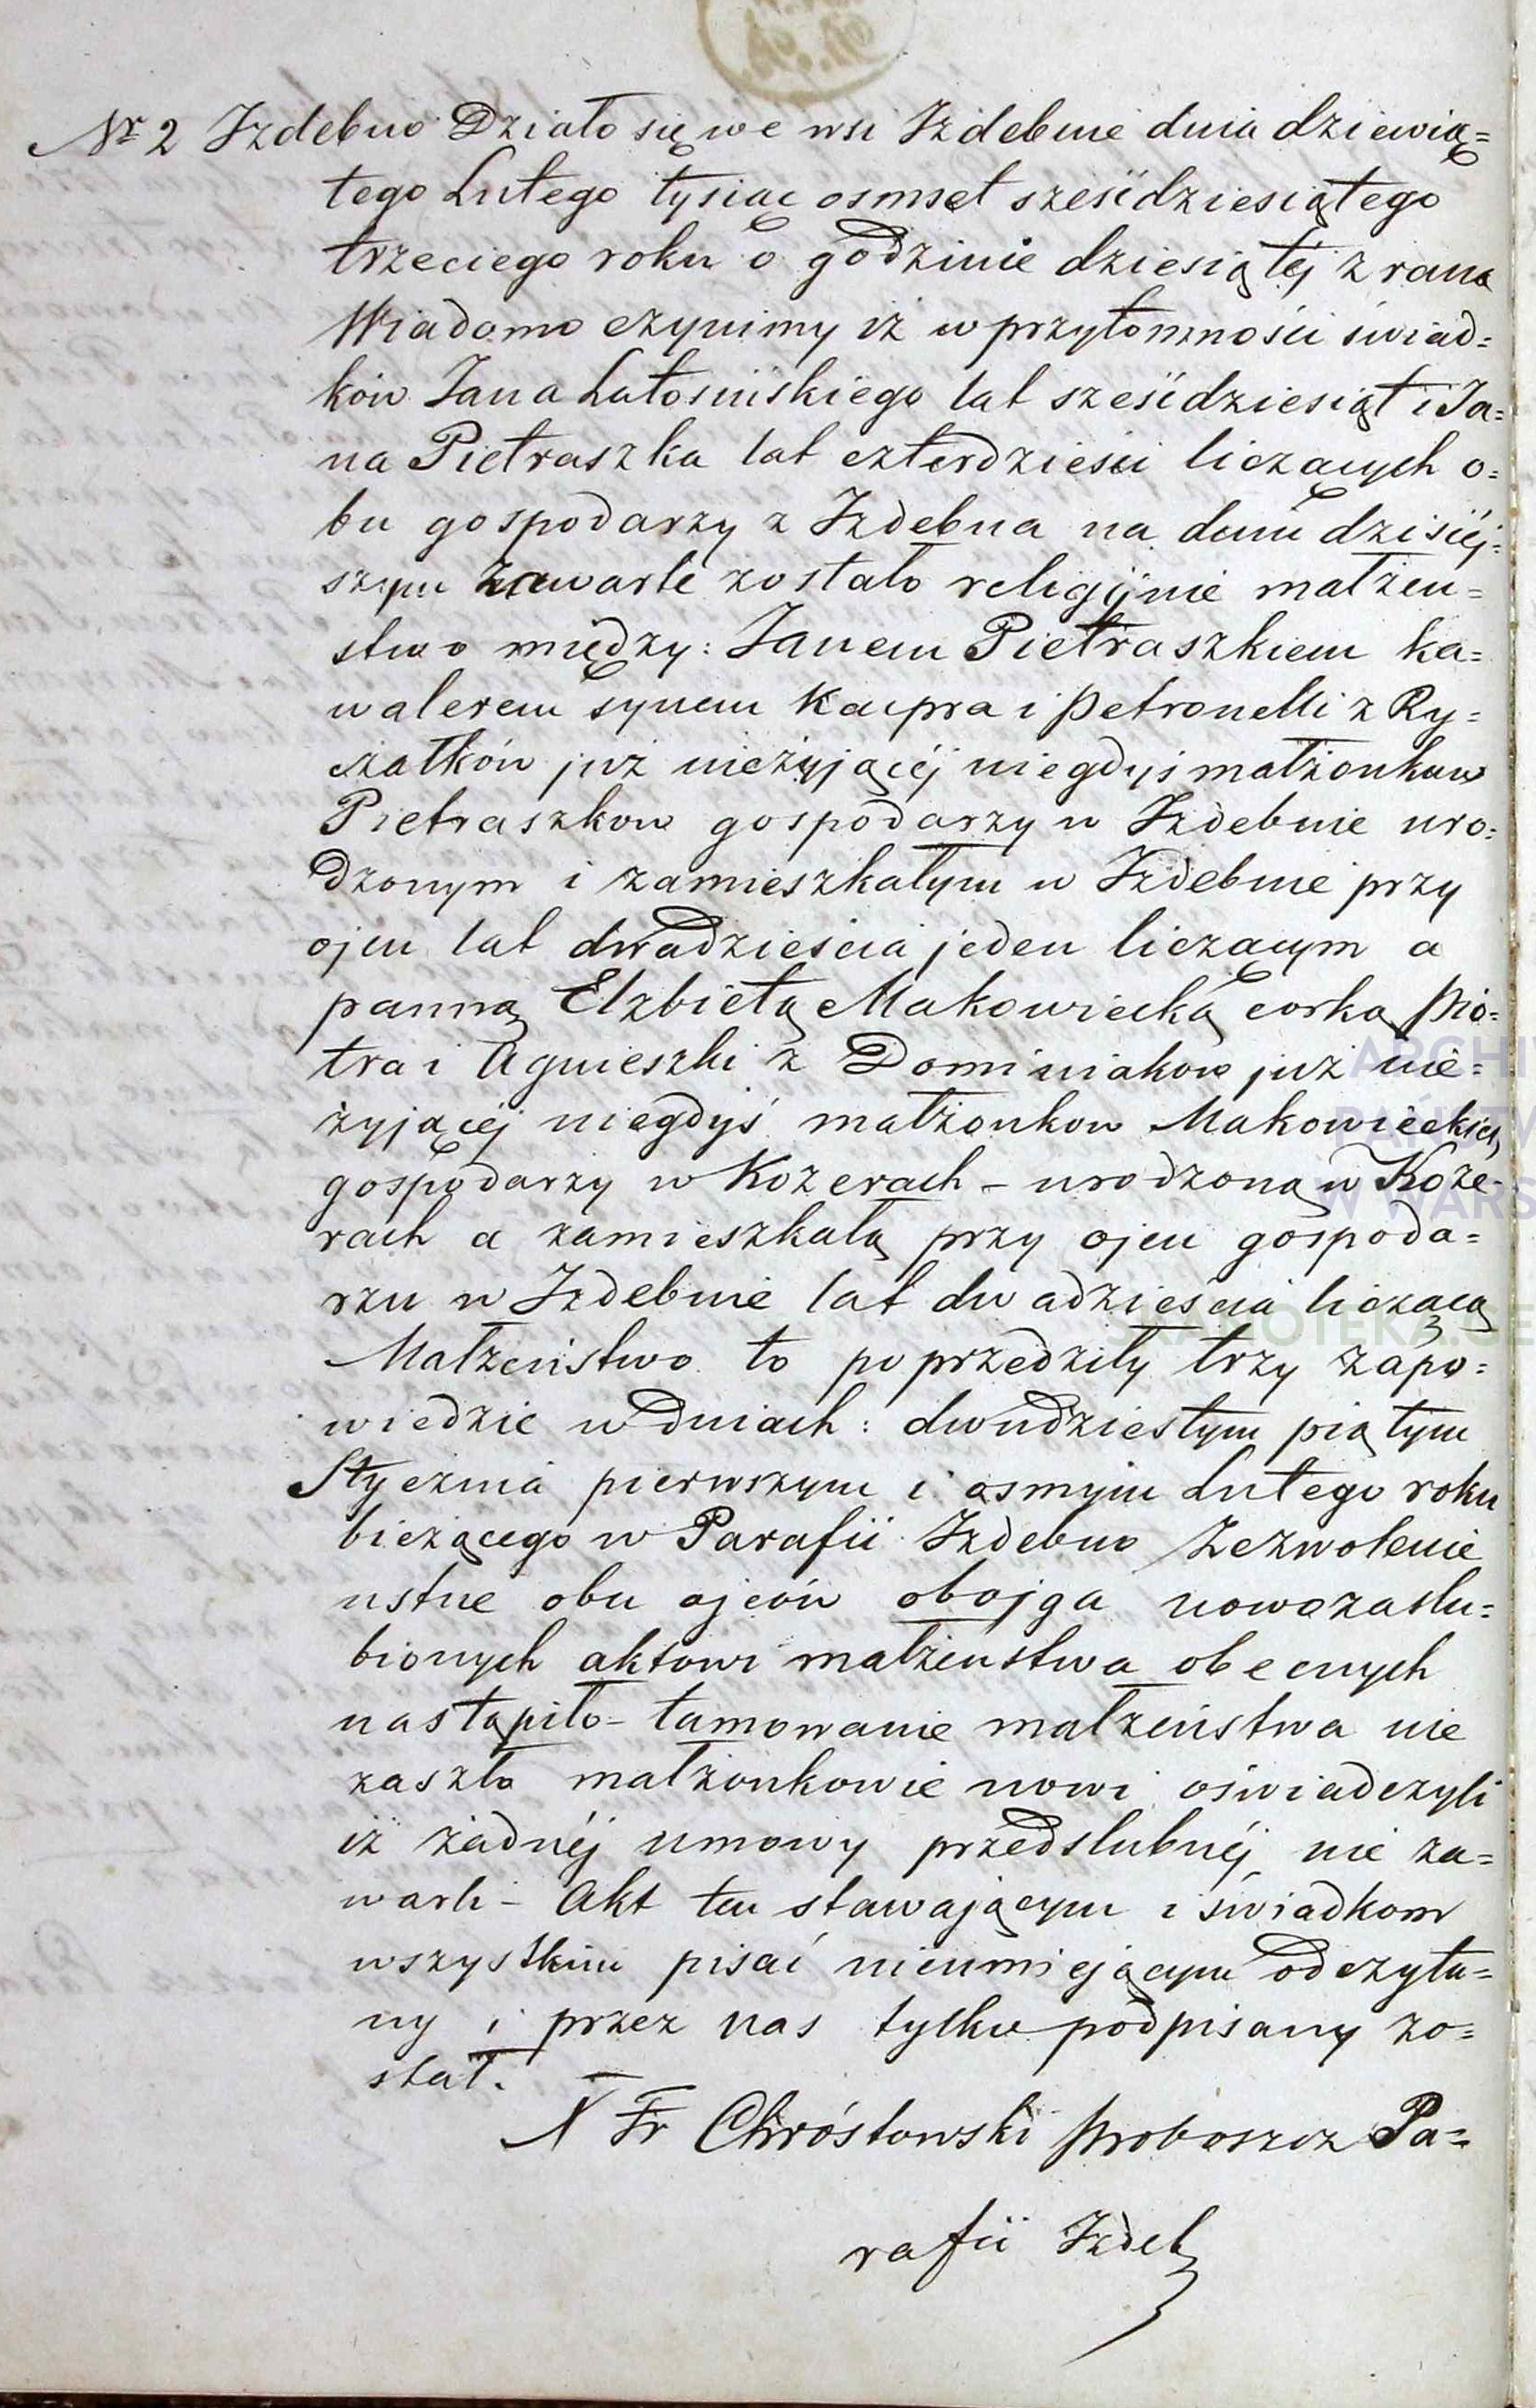 Nr 2 Izdebno Działo się we wsi Izdebnie dnia dziewią=
tego Lutego tysiąc osmset sześćdziesiątego
trzeciego roku o godzinie dziesiątéj z rana
Wiadomo czynimy iż w przytomności świad=
ków Jana Latosińskiego lat sześćdziesiąt i Ja=
na Pietraszka lat czterdzieści liczących o=
bu gospodarzy z Izdebna na dniu dzisiéj=
szym zawarte zostało religijnie małżen=
stwo między: Janem Pietraszkiem ka=
walerem synem Kacpra i Petronelli z Ry=
czałków już nieżyjącéj niegdyś małżonkow
Pietraszkow gospodarzy w Izdebnie uro=
dzonym i zamieszkałym w Izdebnie przy
ojcu lat dwadzieścia jeden liczącym a
panną Elzbietą Makowiecką corką Pio=
tra i Agnieszki z Dominiakow już nie=
żyjącéj niegdyś małżonkow Makowieckich
gospodarzy w Kozerach – urodzoną w Koze-
rach a zamieszkałą przy ojcu gospoda=
rzu w Izdebnie lat dwadzieścia liczącą
Małżeństwo to poprzedziły trzy zapo=
wiedzie w dniach: dwudziestym piątym
Stycznia pierwszym i osmym Lutego roku
bieżącego w Parafii Izdebno Zezwolenie
ustne obu ojców obojga nowozaslu=
bionych aktowi małżenstwa obecnych
nastąpiło – tamowanie małżeństwa nie
zaszło małżonkowie nowi oświadczyli
iż żadnéj umowy przedslubnéj nie za=
warli – Akt ten stawającym i świadkom
wszystkim pisać nieumiejącym odczyta=
ny i przez nas tylko podpisany zo=
stał.
X Fr Chróstowski Proboszcz Pa=
rafii Izdeb